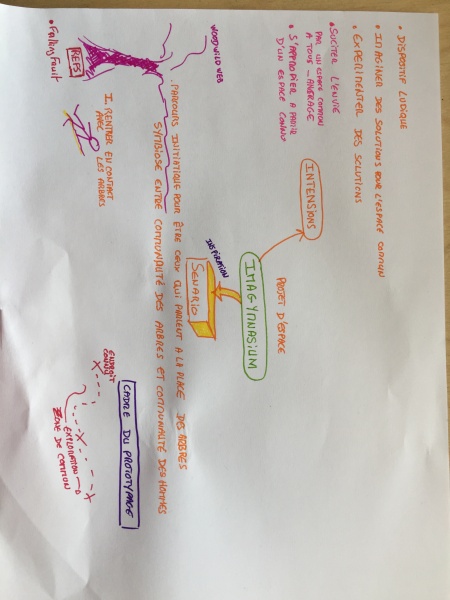 • DISPOSITIF LUDIQUE
• IMAGINER DES SOLUTIONS POUR L'ESPACE COMMUN
• EXPERIMENTER DES SOLUTIONS
• SUCITER L'ENVIE
PAR UN CADRE COMMUN
A TOUS - ABERAGE
• S'APPROPIER A PARTIR
D'UN ESPACE CONNU
INTENSIONS
PROJET D'ESPACE
IMAGYMNASIUM
INSPIRATION
SENARIO
WOODWILDWEB
. PARCOURS INITIATIQUE POUR ÊTRE CEUX QUI PARLENT A LA PLACE DES ARBRES
SYMBIOSE ENTRE COMMUNAUTÉ DES ARBRES ET COMMUNAUTÉ DES HOMMES
REFS
• Falling Fruit
I. RENTRER EN CONTACT
AVEC LES ARBRES
CADRE DU PROTOTYPAGE
ENDROIT
CONNU
EXPLORATION
ZONE DE COMMUN